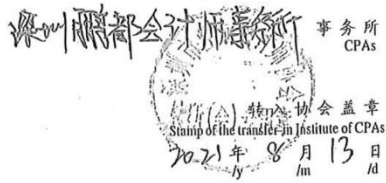 深圳鹏都会计师事务所 事务所
CPAs
转入协会盖章
Stamp of the transfer-in Institute of CPAs
2021年 8月 13日
/y /m /d